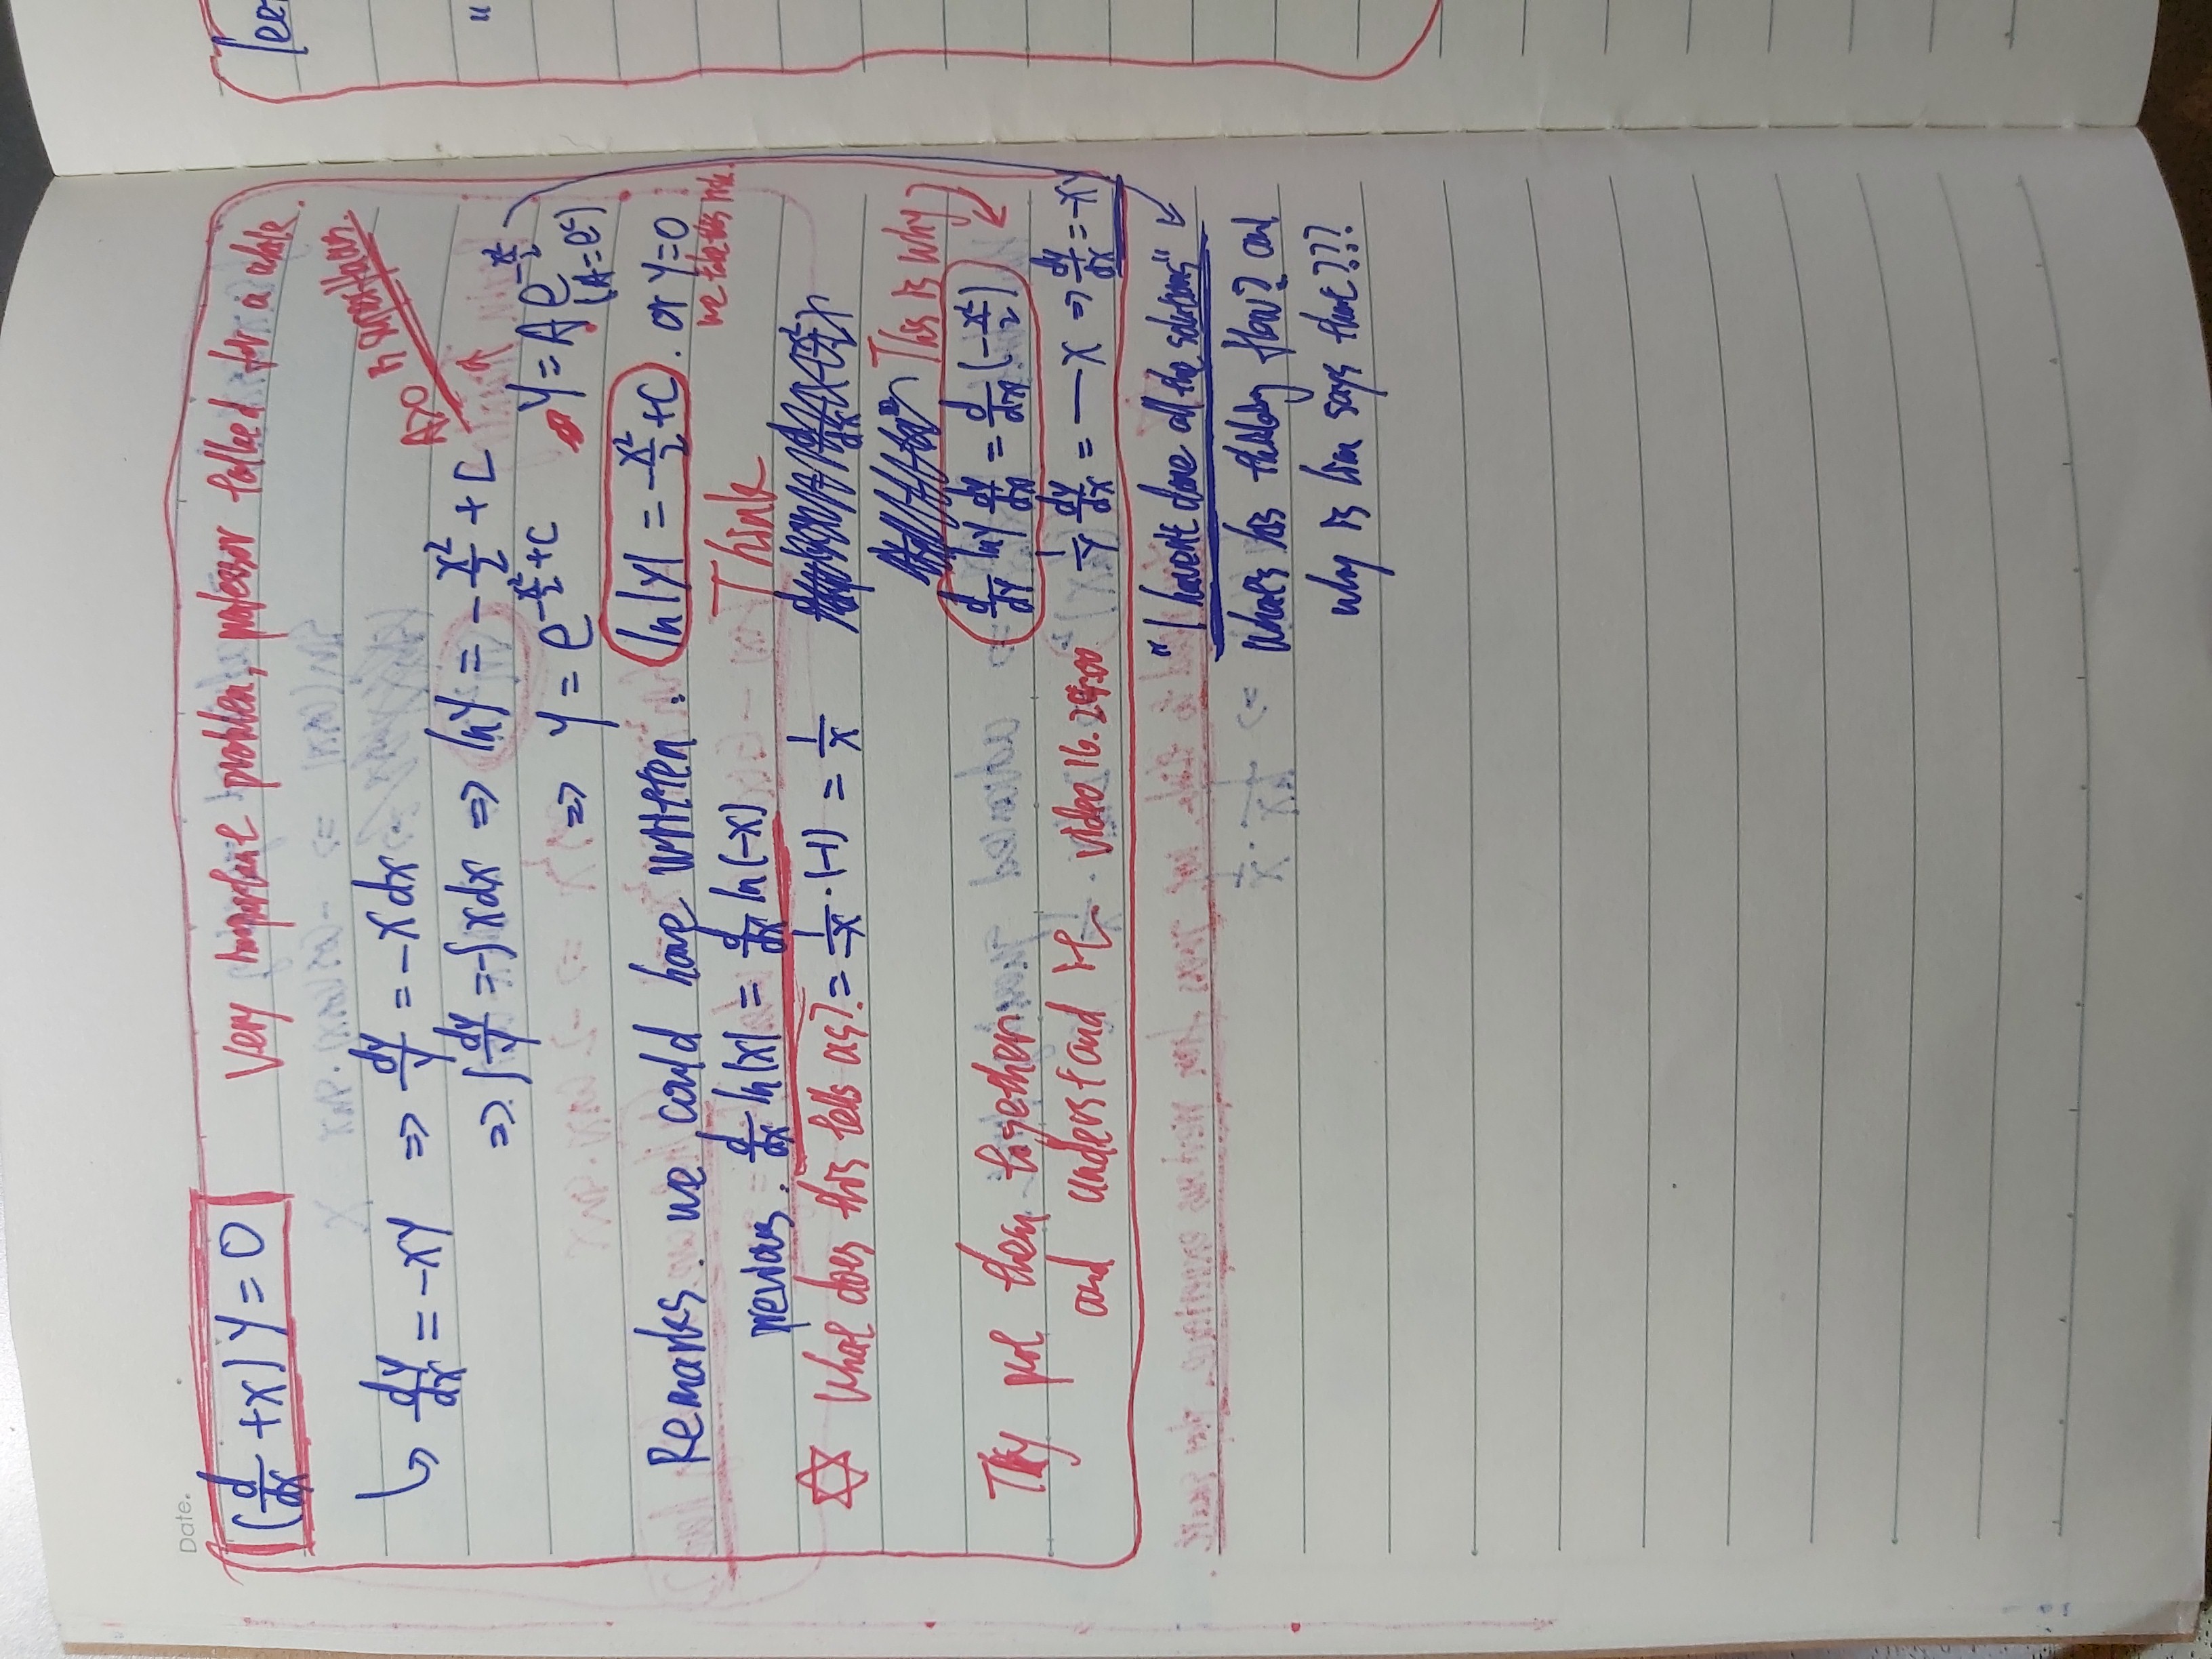 Date.
(d/dx + x) y = 0 Very important problem, professor talked for a while.
dy/dx = -xy => dy/y = -x dx A>0 is superfluous.
=> ∫ dy/y = -∫ x dx => ln y = -x²/2 + C
=> y = e^(-x²/2 + C) y = A e^(-x²/2)
(A = e^c)
Remarks. we could have written. ln|y| = -x²/2 + C. or y=0
we take this risk.
previous. d/dx ln|x| = d/dx ln(-x) Think
What does this tells us? = 1/-x · (-1) = 1/x
This is why
d/dy ln y dy/dx = d/dx (-x²/2)
Try put them together
and understand it. video 16. 29:00 1/y dy/dx = -x => dy/dx = -xy
"I haven't done all the solutions"
What's his thinking flow? and
why is him says that???
lee
"